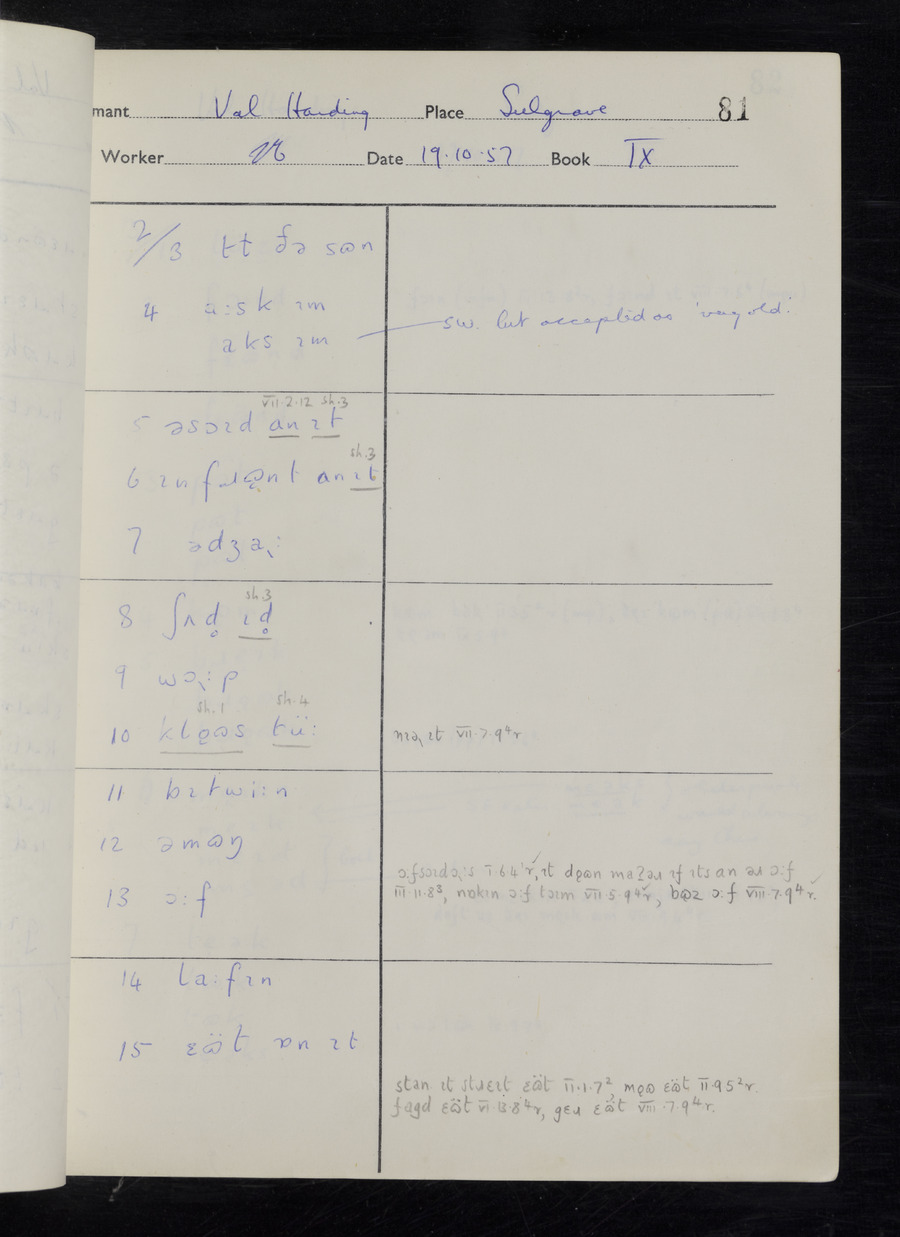 mant Val Harding Place Sulgrave 81
Worker Date 19.10.57 Book IX
2/3 tt ðə sɷn
4 a:sk ɪm
aks ɪm
s.w. but accepted as 'very old'.
VII.2.12 sh.3
5 əsəɪd an ɪt
sh.3
6 ɪn fɹɷ̜nt an ɪt
7 ədʒə˞:
sh.3
8 ʃʌd̥ ɪd̥
9 wɔ˞:p
sh.1 sh.4
10 klo̜ɷs tü:
ɪt VII.7.9⁴r
11 bɪtwi:n
12 əmɷŋ
13 ɔ:f
I.6.4'r, ɪt do̜ɷn maʔəɹ ɪf ɪts an əɹ ɔ:f
III.11.8³, nɒkɪn ɔ:f təɪm VII.5.9⁴r, ɔ:f VIII.7.9⁴r.
14 la:fɪn
15 ɛɷ̈t ɒn ɪt
stan ɪt stɹɛɪt ɛɷ̈t II.1.7², ɛɷ̈t II.9.5²r.
fagd ɛɷ̈t VI.13.8⁴r, ɛɷ̈t VIII.7.9⁴r.